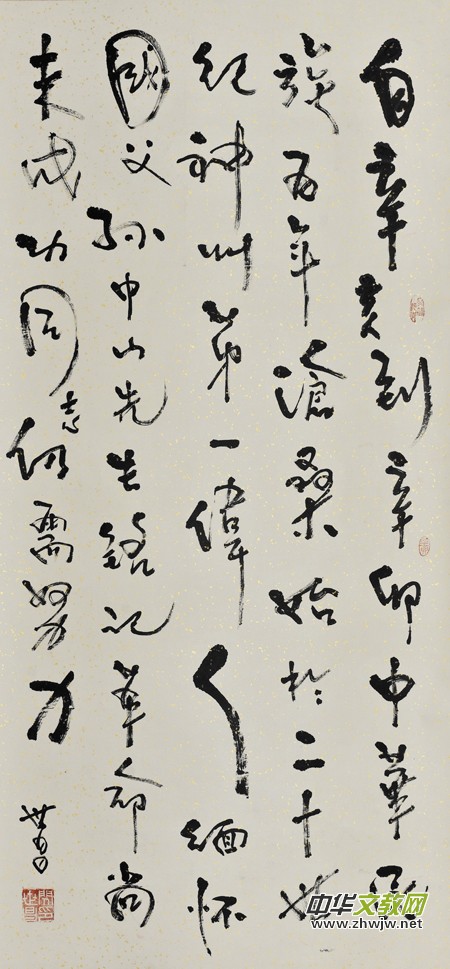 自辛亥到辛卯中華民
族百年滄桑始於二十世
紀神州第一偉人緬懷
國父孫中山先生銘記革命尚
未成功同志仍需努力
中华文教网
www.zhwjw.net